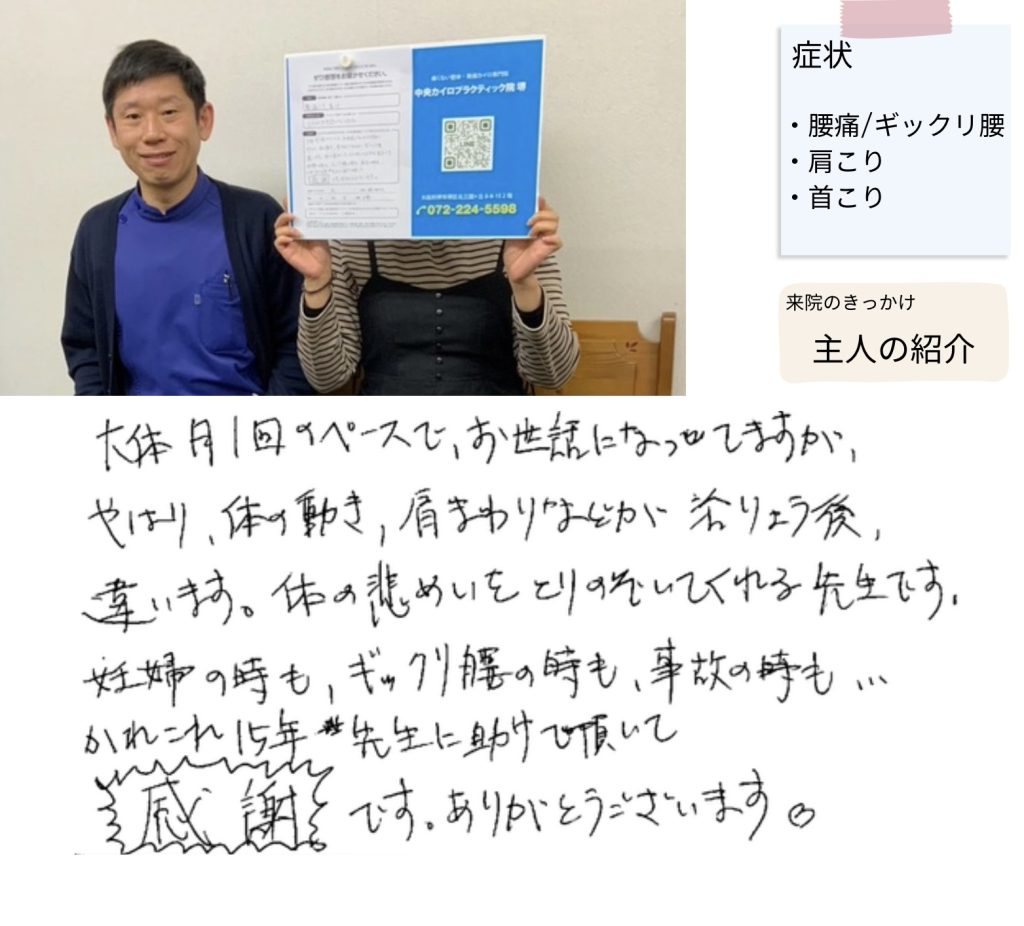 ぜひ感想をお聞かせください。
中央カイロプラクティック院 堺
LINE
072-224-5598
症状
・腰痛/ギックリ腰
・肩こり
・首こり
来院のきっかけ
主人の紹介
大体月1回のペースで、お世話になってますが、
やはり、体の動き、肩まわりなどが 治りょう後、
違います。体の悲めいをとりのぞいてくれる先生です。
妊婦の時も、ギックリ腰の時も、事故の時も…
かれこれ15年 先生に助けて頂いて
感謝 です。ありがとうございます